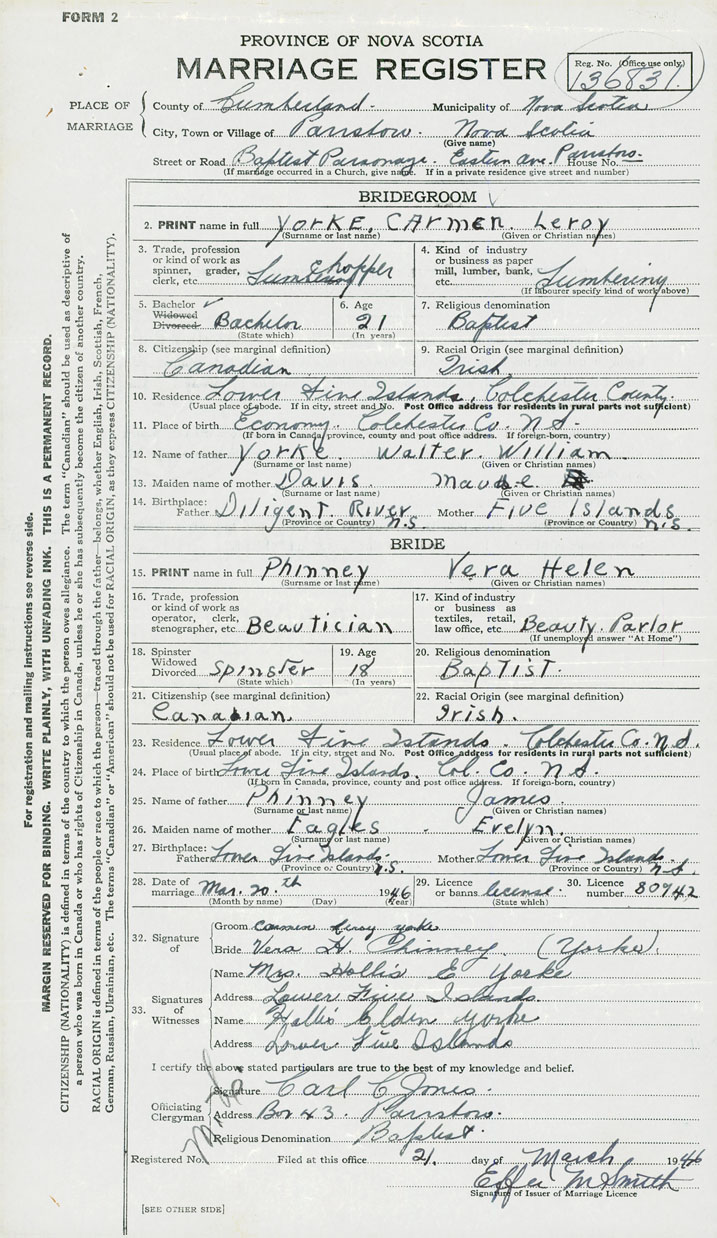 FORM 2
PROVINCE OF NOVA SCOTIA
MARRIAGE REGISTER
Reg. No. (Office use only)
136831
PLACE OF MARRIAGE
County of Cumberland Municipality of Nova Scotia
City, Town or Village of Parrsboro. Nova Scotia
(Give name)
Street or Road Baptist Parsonage. Eastern Ave. Parrsboro. House No.
(If marriage occurred in a Church, give name. If in a private residence give street and number)
BRIDEGROOM
2. PRINT name in full Yorke, Carmen. Leroy
(Surname or last name) (Given or Christian names)
3. Trade, profession or kind of work as spinner, grader, clerk, etc. Chopper
4. Kind of industry or business as paper mill, lumber, bank, etc. Lumbering
(If labourer specify kind of work above)
5. Bachelor Widowed Divorced Bachelor
(State which)
6. Age 21
(In years)
7. Religious denomination
Baptist
8. Citizenship (see marginal definition)
Canadian
9. Racial Origin (see marginal definition)
Irish
10. Residence Lower Five Islands, Colchester County.
(Usual place of abode. If in city, street and No. Post Office address for residents in rural parts not sufficient)
11. Place of birth Economy. Colchester Co. N.S.
(If born in Canada, province, county and post office address. If foreign-born, country)
12. Name of father Yorke. Walter. William
(Surname or last name) (Given or Christian names)
13. Maiden name of mother Davis Maude
(Surname or last name) (Given or Christian names)
14. Birthplace: Father Diligent River N.S. Mother Five Islands N.S.
(Province or Country) (Province or Country)
BRIDE
15. PRINT name in full Phinney Vera Helen
(Surname or last name) (Given or Christian names)
16. Trade, profession or kind of work as operator, clerk, stenographer, etc Beautician
17. Kind of industry or business as textiles, retail, law office, etc. Beauty Parlor
(If unemployed answer "At Home")
18. Spinster Widowed Divorced Spinster
(State which)
19. Age 18
(In years)
20. Religious denomination
Baptist.
21. Citizenship (see marginal definition)
Canadian.
22. Racial Origin (see marginal definition)
Irish.
23. Residence Lower Five Islands. Colchester Co. N.S.
(Usual place of abode. If in city, street and No. Post Office address for residents in rural parts not sufficient)
24. Place of birth Lower Five Islands, Col. Co. N.S.
(If born in Canada, province, county and post office address. If foreign-born, country)
25. Name of father Phinney James.
(Surname or last name) (Given or Christian names)
26. Maiden name of mother Eagles. Evelyn.
(Surname or last name) (Given or Christian names)
27. Birthplace: Father Lower Five Islands. N.S. Mother Lower Five Islands N.S.
(Province or Country) (Province or Country)
28. Date of marriage Mar. 20.th 1946
(Month by name) (Day) (Year)
29. Licence or banns license.
(State which)
30. Licence number 80742
32. Signature of
Groom Carmen Leroy Yorke
Bride Vera H. Phinney (Yorke).
33. Signatures of Witnesses
Name Mrs. Hollis E Yorke
Address Lower Five Islands
Name Hollis Elden Yorke
Address Lower Five Islands
I certify the above stated particulars are true to the best of my knowledge and belief.
Officiating Clergyman
Signature Carl C Jones.
Address Box 43. Parrsboro.
Religious Denomination Baptist.
Registered No. Filed at this office 21. day of March 1946
Effie M Smith
Signature of Issuer of Marriage Licence
[SEE OTHER SIDE]
For registration and mailing instructions see reverse side.
MARGIN RESERVED FOR BINDING. WRITE PLAINLY, WITH UNFADING INK. THIS IS A PERMANENT RECORD.
CITIZENSHIP (NATIONALITY) is defined in terms of the country to which the person owes allegiance. The term "Canadian" should be used as descriptive of
a person who was born in Canada or who has rights of Citizenship in Canada, unless he or she has subsequently become the citizen of another country.
RACIAL ORIGIN is defined in terms of the people or race to which the person—traced through the father—belongs, whether English, Irish, Scottish, French,
German, Russian, Ukrainian, etc. The terms "Canadian" or "American" should not be used for RACIAL ORIGIN, as they express CITIZENSHIP (NATIONALITY).